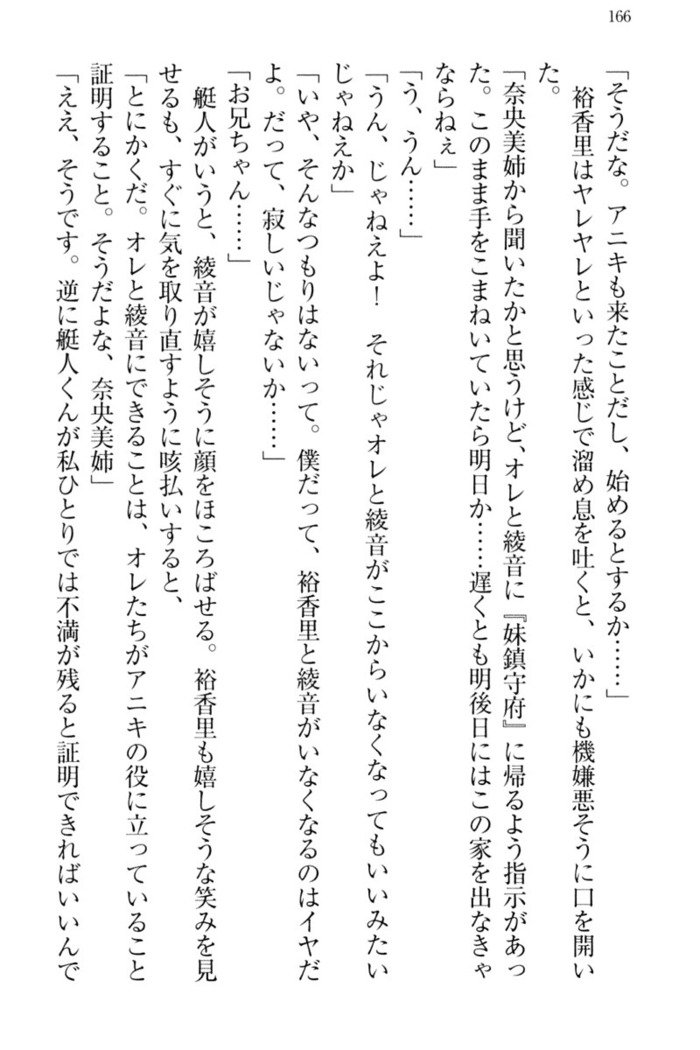 166
「そうだな。アニキも来たことだし、始めるとするか……」
　裕香里はヤレヤレといった感じで溜め息を吐くと、いかにも機嫌悪そうに口を開い
た。
「奈央美姉から聞いたかと思うけど、オレと綾音に『妹鎮守府』に帰るよう指示があっ
た。このまま手をこまねいていたら明日か……遅くとも明後日にはこの家を出なきゃ
ならねぇ」
「う、うん……」
「うん、じゃねえよ！　それじゃオレと綾音がここからいなくなってもいいみたい
じゃねえか」
「いや、そんなつもりはないって。僕だって、裕香里と綾音がいなくなるのはイヤだ
よ。だって、寂しいじゃないか……」
「お兄ちゃん……」
　艇人がいうと、綾音が嬉しそうに顔をほころばせる。裕香里も嬉しそうな笑みを見
せるも、すぐに気を取り直すように咳払いすると、
「とにかくだ。オレと綾音にできることは、オレたちがアニキの役に立っていること
証明すること。そうだよな、奈央美姉」
「ええ、そうです。逆に艇人くんが私ひとりでは不満が残ると証明できればいいんで